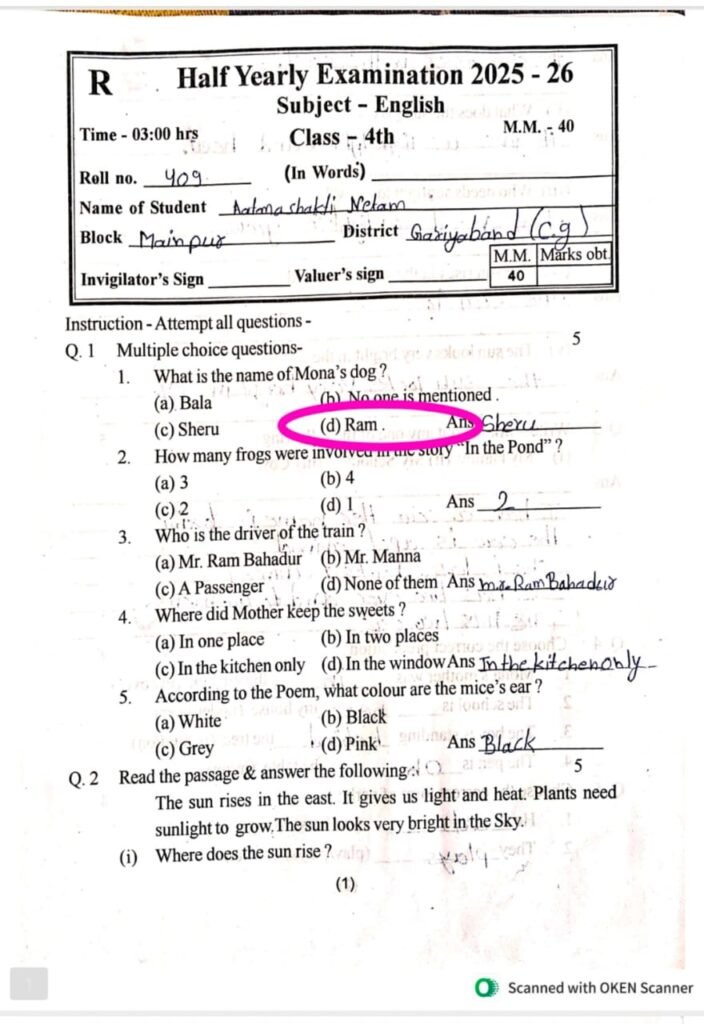 R Half Yearly Examination 2025 - 26
Subject – English
Time - 03:00 hrs Class – 4th M.M. - 40
Roll no. 409 (In Words)
Name of Student Aatmashakti Netam
Block Mainpur District Gariyaband (C.g)
M.M. Marks obt.
Invigilator's Sign Valuer's sign 40
Instruction - Attempt all questions -
Q. 1 Multiple choice questions- 5
1. What is the name of Mona's dog ?
(a) Bala (b) No one is mentioned .
(c) Sheru (d) Ram . Ans Sheru
2. How many frogs were involved in the story "In the Pond" ?
(a) 3 (b) 4
(c) 2 (d) 1 Ans 2
3. Who is the driver of the train ?
(a) Mr. Ram Bahadur (b) Mr. Manna
(c) A Passenger (d) None of them Ans mr. Ram Bahadur
4. Where did Mother keep the sweets ?
(a) In one place (b) In two places
(c) In the kitchen only (d) In the window Ans In the kitchen only
5. According to the Poem, what colour are the mice's ear ?
(a) White (b) Black
(c) Grey (d) Pink Ans Black
Q. 2 Read the passage & answer the following: 5
The sun rises in the east. It gives us light and heat. Plants need
sunlight to grow. The sun looks very bright in the Sky.
(i) Where does the sun rise ?
(1)
Scanned with OKEN Scanner